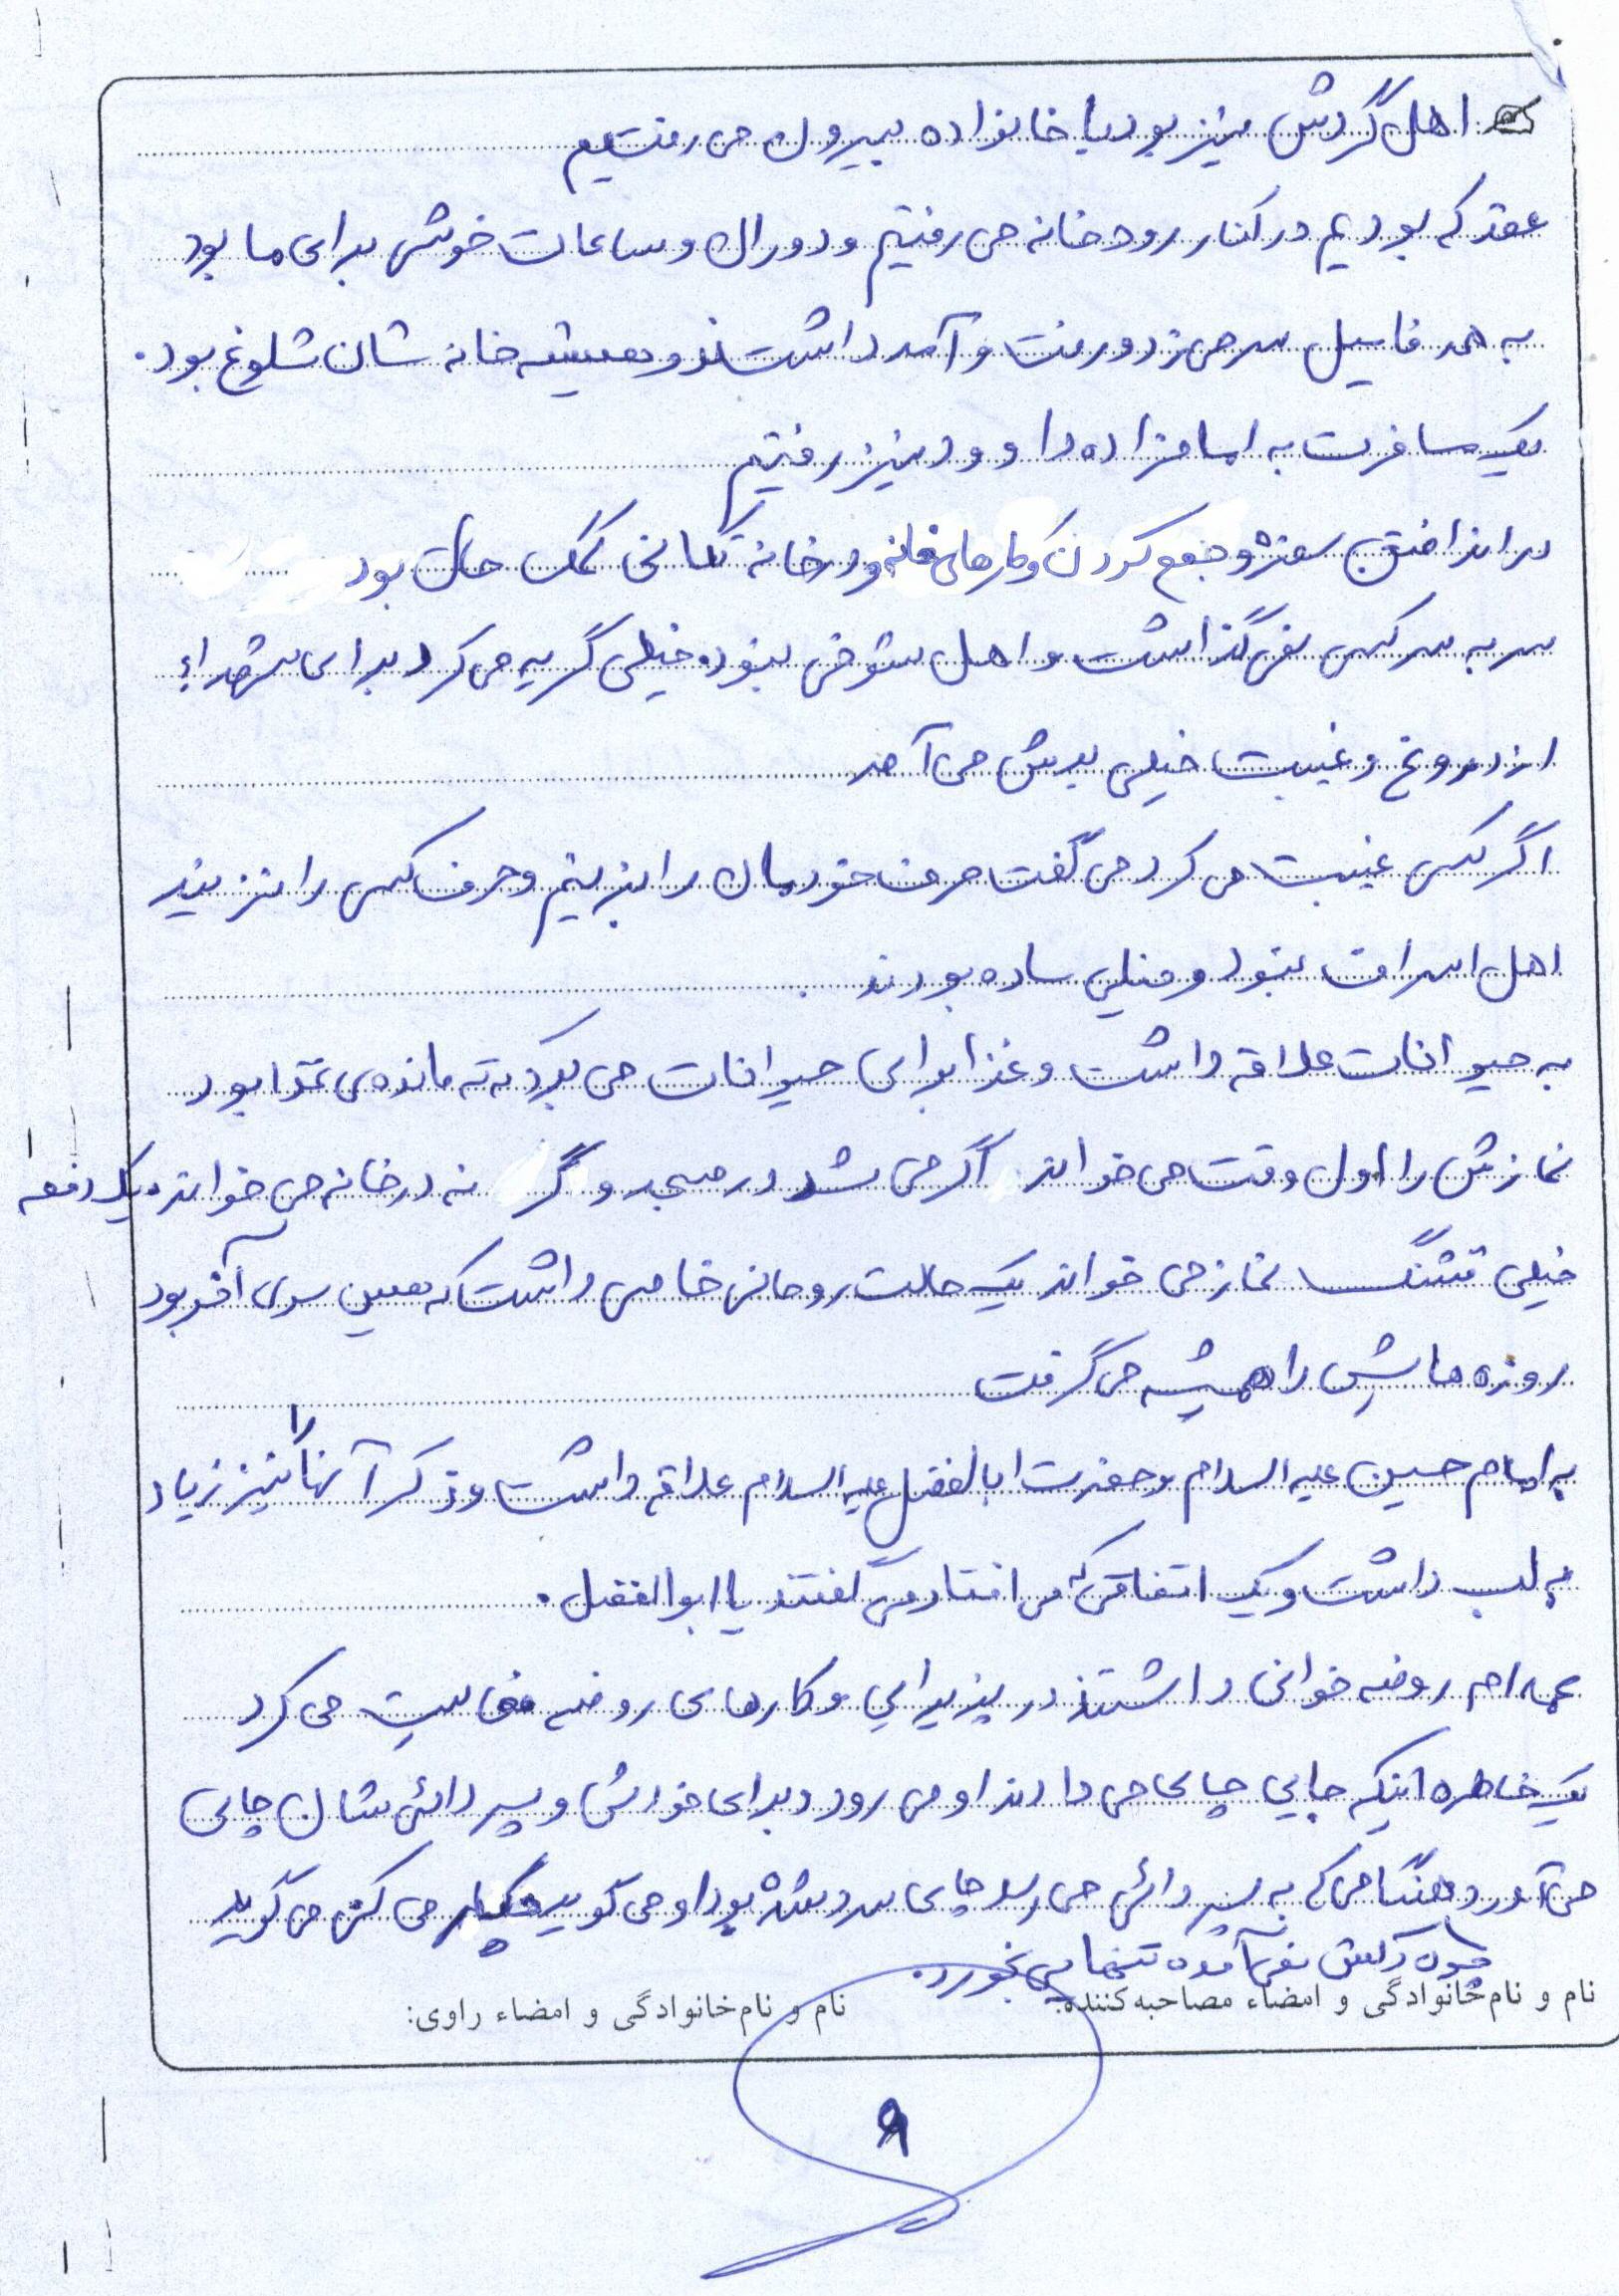 اهل گردش نیز بود با خانواده بیرون می رفتیم
عقد که بودیم در کنار رودخانه می رفتیم و دوران و ساعات خوشی برای ما بود
به همه فامیل سر می زد و رفت و آمد داشتند و همیشه خانه شان شلوغ بود.
یک مسافرت به امامزاده داوود نیز رفتیم
در انداختن سفره و جمع کردن و کارهای خانه و در خانه تکانی کمک حال بود
سر به سر کسی نمی گذاشت و اهل شوخی نبود. خیلی گریه می کرد برای شهداء
از دروغ و غیبت خیلی بدش می آمد
اگر کسی غیبت می کرد می گفت حرف خودمان را بزنیم و حرف کسی را نزنید
اهل اسراف نبود و خیلی ساده بودند
به حیوانات علاقه داشت و غذا برای حیوانات می برد که ته مانده ی غذا بود
نمازش را اول وقت می خواند اگر می شد در مسجد و گر نه در خانه می خواند. یک دفعه
خیلی قشنگ نماز می خواند یک حالت روحانی خاصی داشت که همین سری آخر بود
روزه هایش را همیشه می گرفت
به امام حسین علیه السلام و حضرت ابالفضل علیه السلام علاقه داشت و ذکر آنها را نیز زیاد
به لب داشت و یک اتفاقی که می افتاد می گفتند یا ابوالفضل.
عمه ام روضه خوانی داشتند در پذیرایی و کارهای روضه فعالیت می کرد
یک خاطره اینکه جایی چای می دادند او می رود و برای خودش و پسر دائی شان چای
می آورد و هنگامی که به پسر دائی می رسد چای سرد شده بود او می گوید چکار می کنی می گوید
چون دلش نمی آمده تنهایی بخورد.
نام و نام خانوادگی و امضاء مصاحبه کننده:
نام و نام خانوادگی و امضاء راوی:
۹